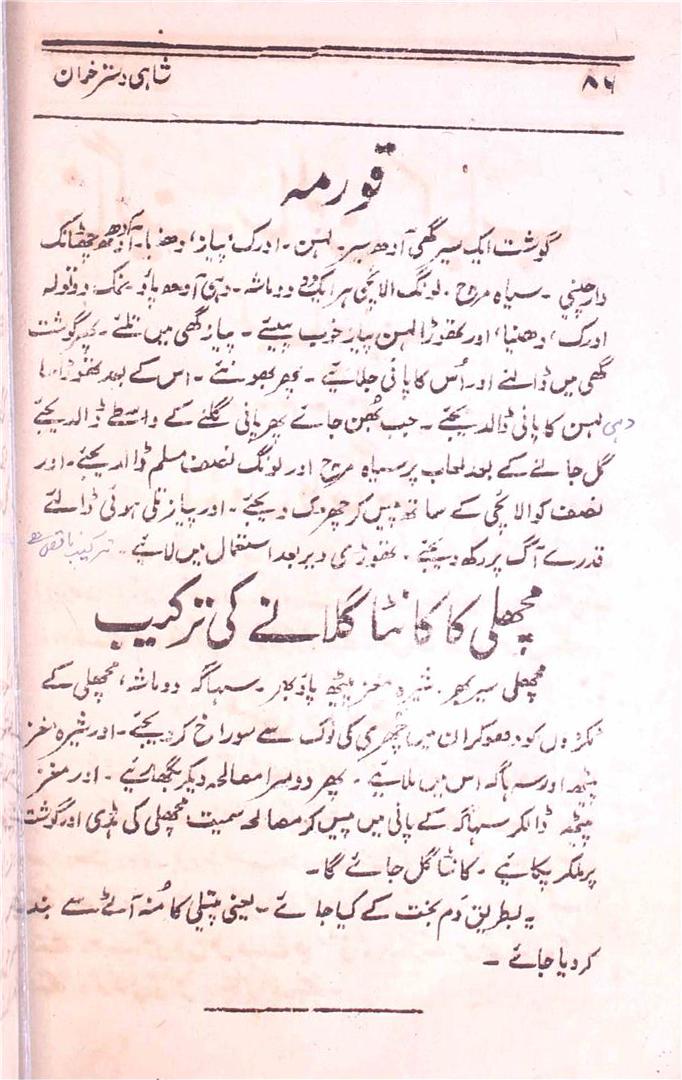 ۸۶
شاہی دسترخوان
قورمہ
گوشت ایک سیر گھی آدھ سیر۔ لہسن۔ ادرک، پیاز، دھنیا۔ آدھی چھٹانک
دارچینی۔ سیاہ مرچ۔ لونگ الائچی ہر ایک دو دو ماشہ۔ دہی آدھ پاؤ۔ نمک دو تولہ
ادرک، دھنیا، اور تھوڑا لہسن پیاز خوب پیسئے۔ پیاز گھی میں تلئے۔ پھر گوشت
گھی میں ڈالئے اور اُس کا پانی جلائیے۔ پھر بھونئے۔ اس کے بعد تھوڑا سا
دہی لہسن کا پانی ڈالدیجئے۔ جب بُھن جائے پھر پانی گلنے کے واسطے ڈالدیجئے
گل جانے کے بعد لعاب پر سیاہ مرچ اور لونگ نصف مسلم ڈالدیجئے۔ اور
نصف کو الائچی کے ساتھ پیس کر چھڑک دیجئے۔ اور پیاز تلی ہوئی ڈالئے
قدرے آگ پر رکھ دیجئے۔ تھوڑی دیر بعد استعمال میں لائیے۔ ترکیب ناقص ہے
مچھلی کا کانٹا گلانے کی ترکیب
مچھلی سیر بھر۔ شیرہ مغز پیٹھ پاؤ بھر۔ سہاگہ دو ماشہ، مچھلی کے
ٹکڑوں کو دھو کر ان میں چُھری کی نوک سے سوراخ کر دیجئے۔ اور شیرہ مغز
پیٹھ اور سہاگہ اس میں ملائیے۔ پھر دوسرا مصالحہ دیکر بگھاریئے۔ اور مغز
پیٹھ ڈالکر سہاگہ کے پانی میں پیس کر مصالحہ سمیت مچھلی کی ہڈی اور گوشت
پر ملکر پکائیے۔ کانٹا گل جائے گا۔
یہ بطریق دَم پخت کے کیا جائے۔ یعنی پتیلی کا مُنہ آٹے سے بند
کر دیا جائے۔